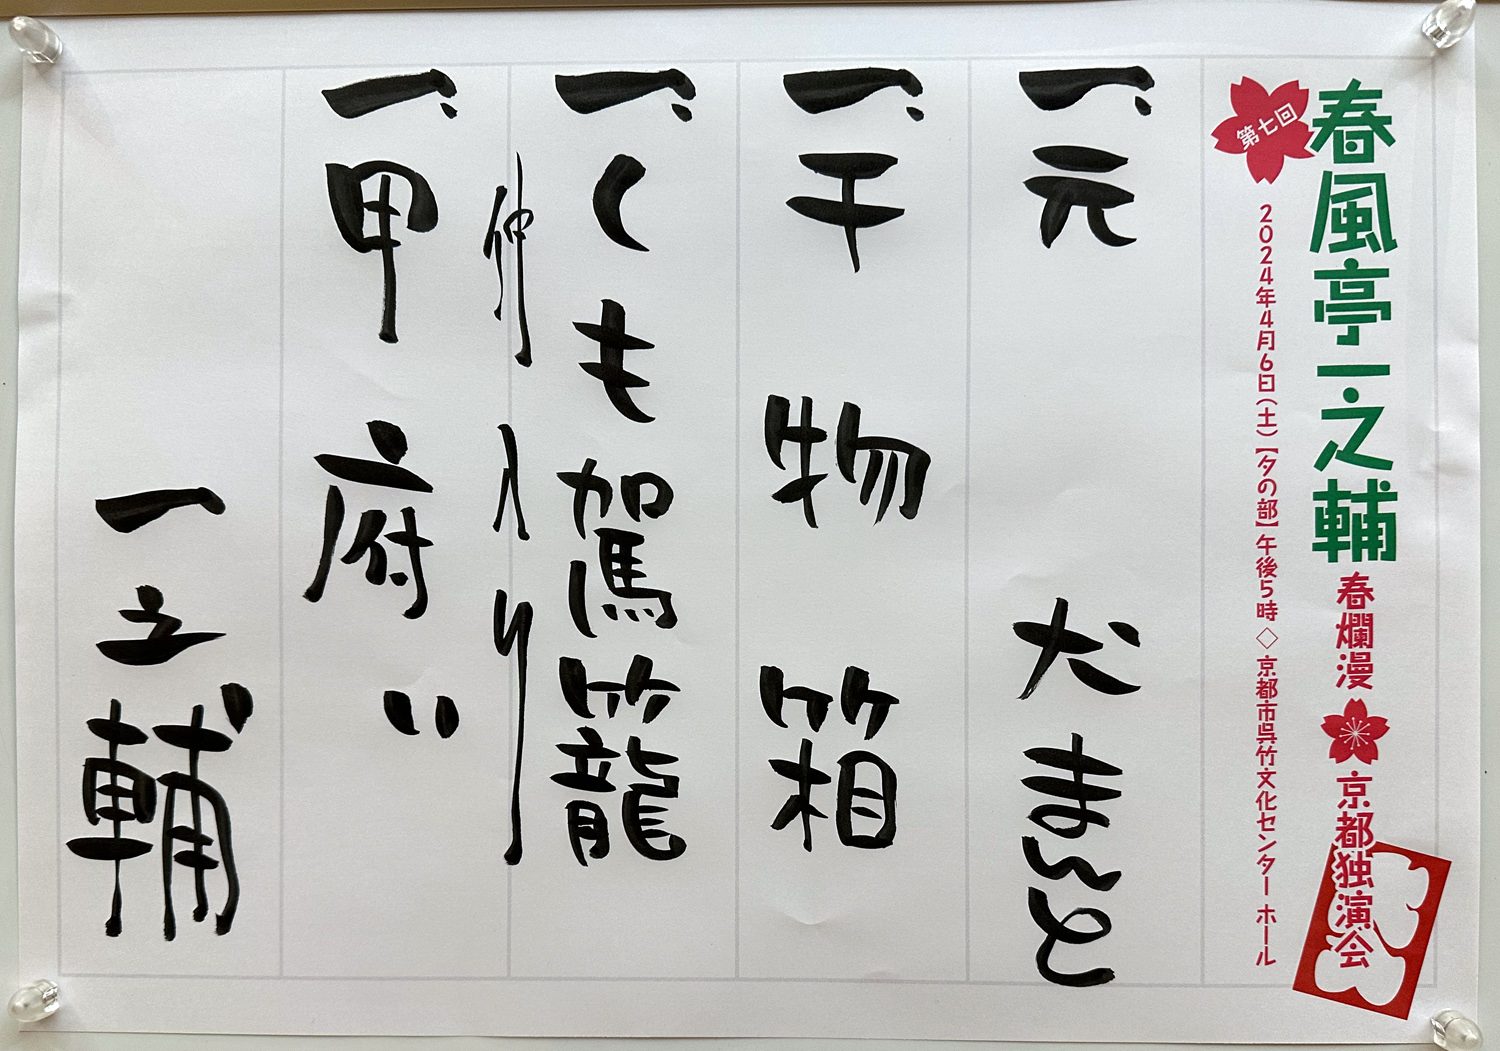 春風亭一之輔 春爛漫 京都独演会
第七回
2024年4月6日(土)【夕の部】午後5時◇京都市呉竹文化センター ホール
一、元 犬 まんと
一、干物箱
一、くも駕籠
仲入り
一、甲府い
一之輔